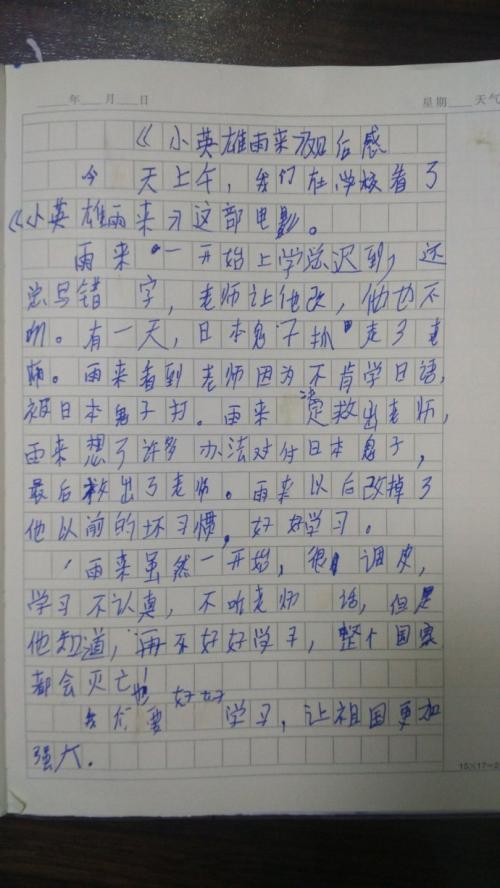 年 月 日 星期 天气
《小英雄雨来》观后感
今天上午，我们在学校看了
《小英雄雨来》这部电影。
雨来一开始上学总迟到，还
总写错字，老师让他改，他也不
听。有一天，日本鬼子抓走了老
师。雨来看到老师因为不肯学日语，
被日本鬼子打。雨来决定救出老师，
雨来想了许多办法对付日本鬼子，
最后救出了老师。雨来以后改掉了
他以前的坏习惯，好好学习。
雨来虽然一开始，很调皮，
学习不认真，不听老师话，但是
他知道，再不好好学习，整个国家
都会灭亡！
我们也要好好学习，让祖国更加
强大.